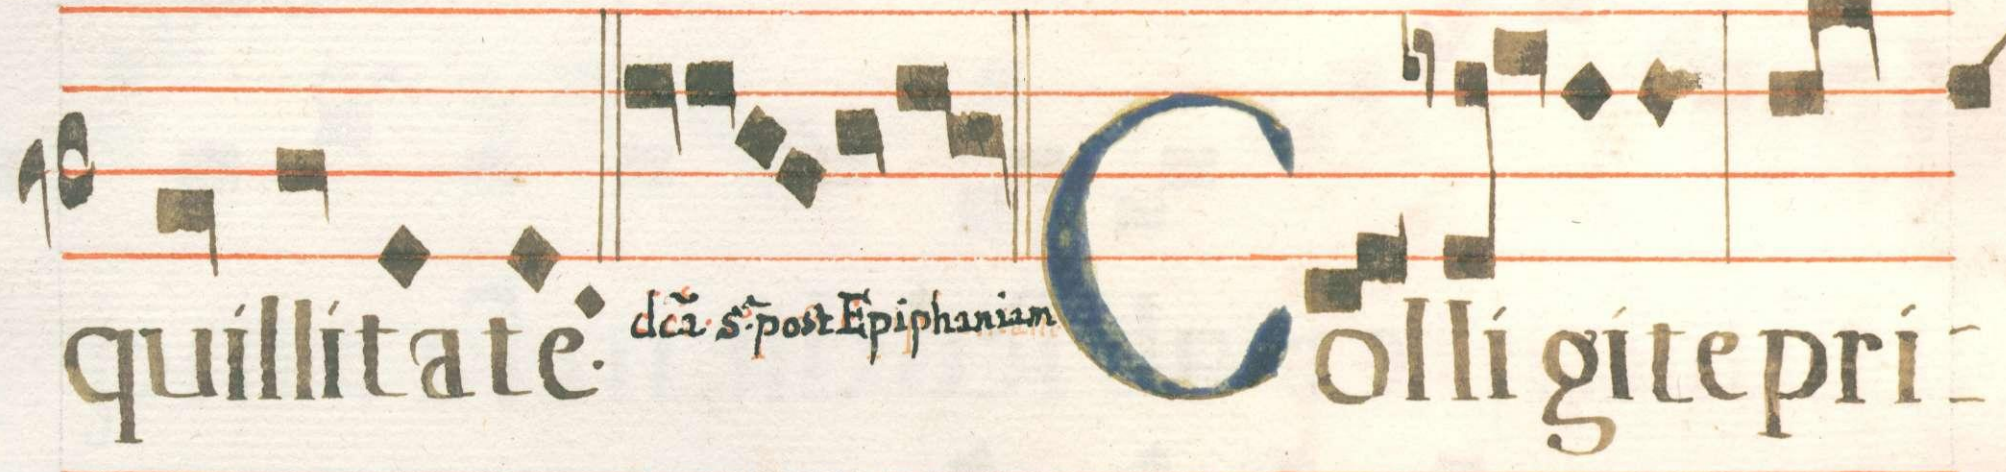 quillitate. dc̃a. s̃. post Epiphaniam Colligite pri-